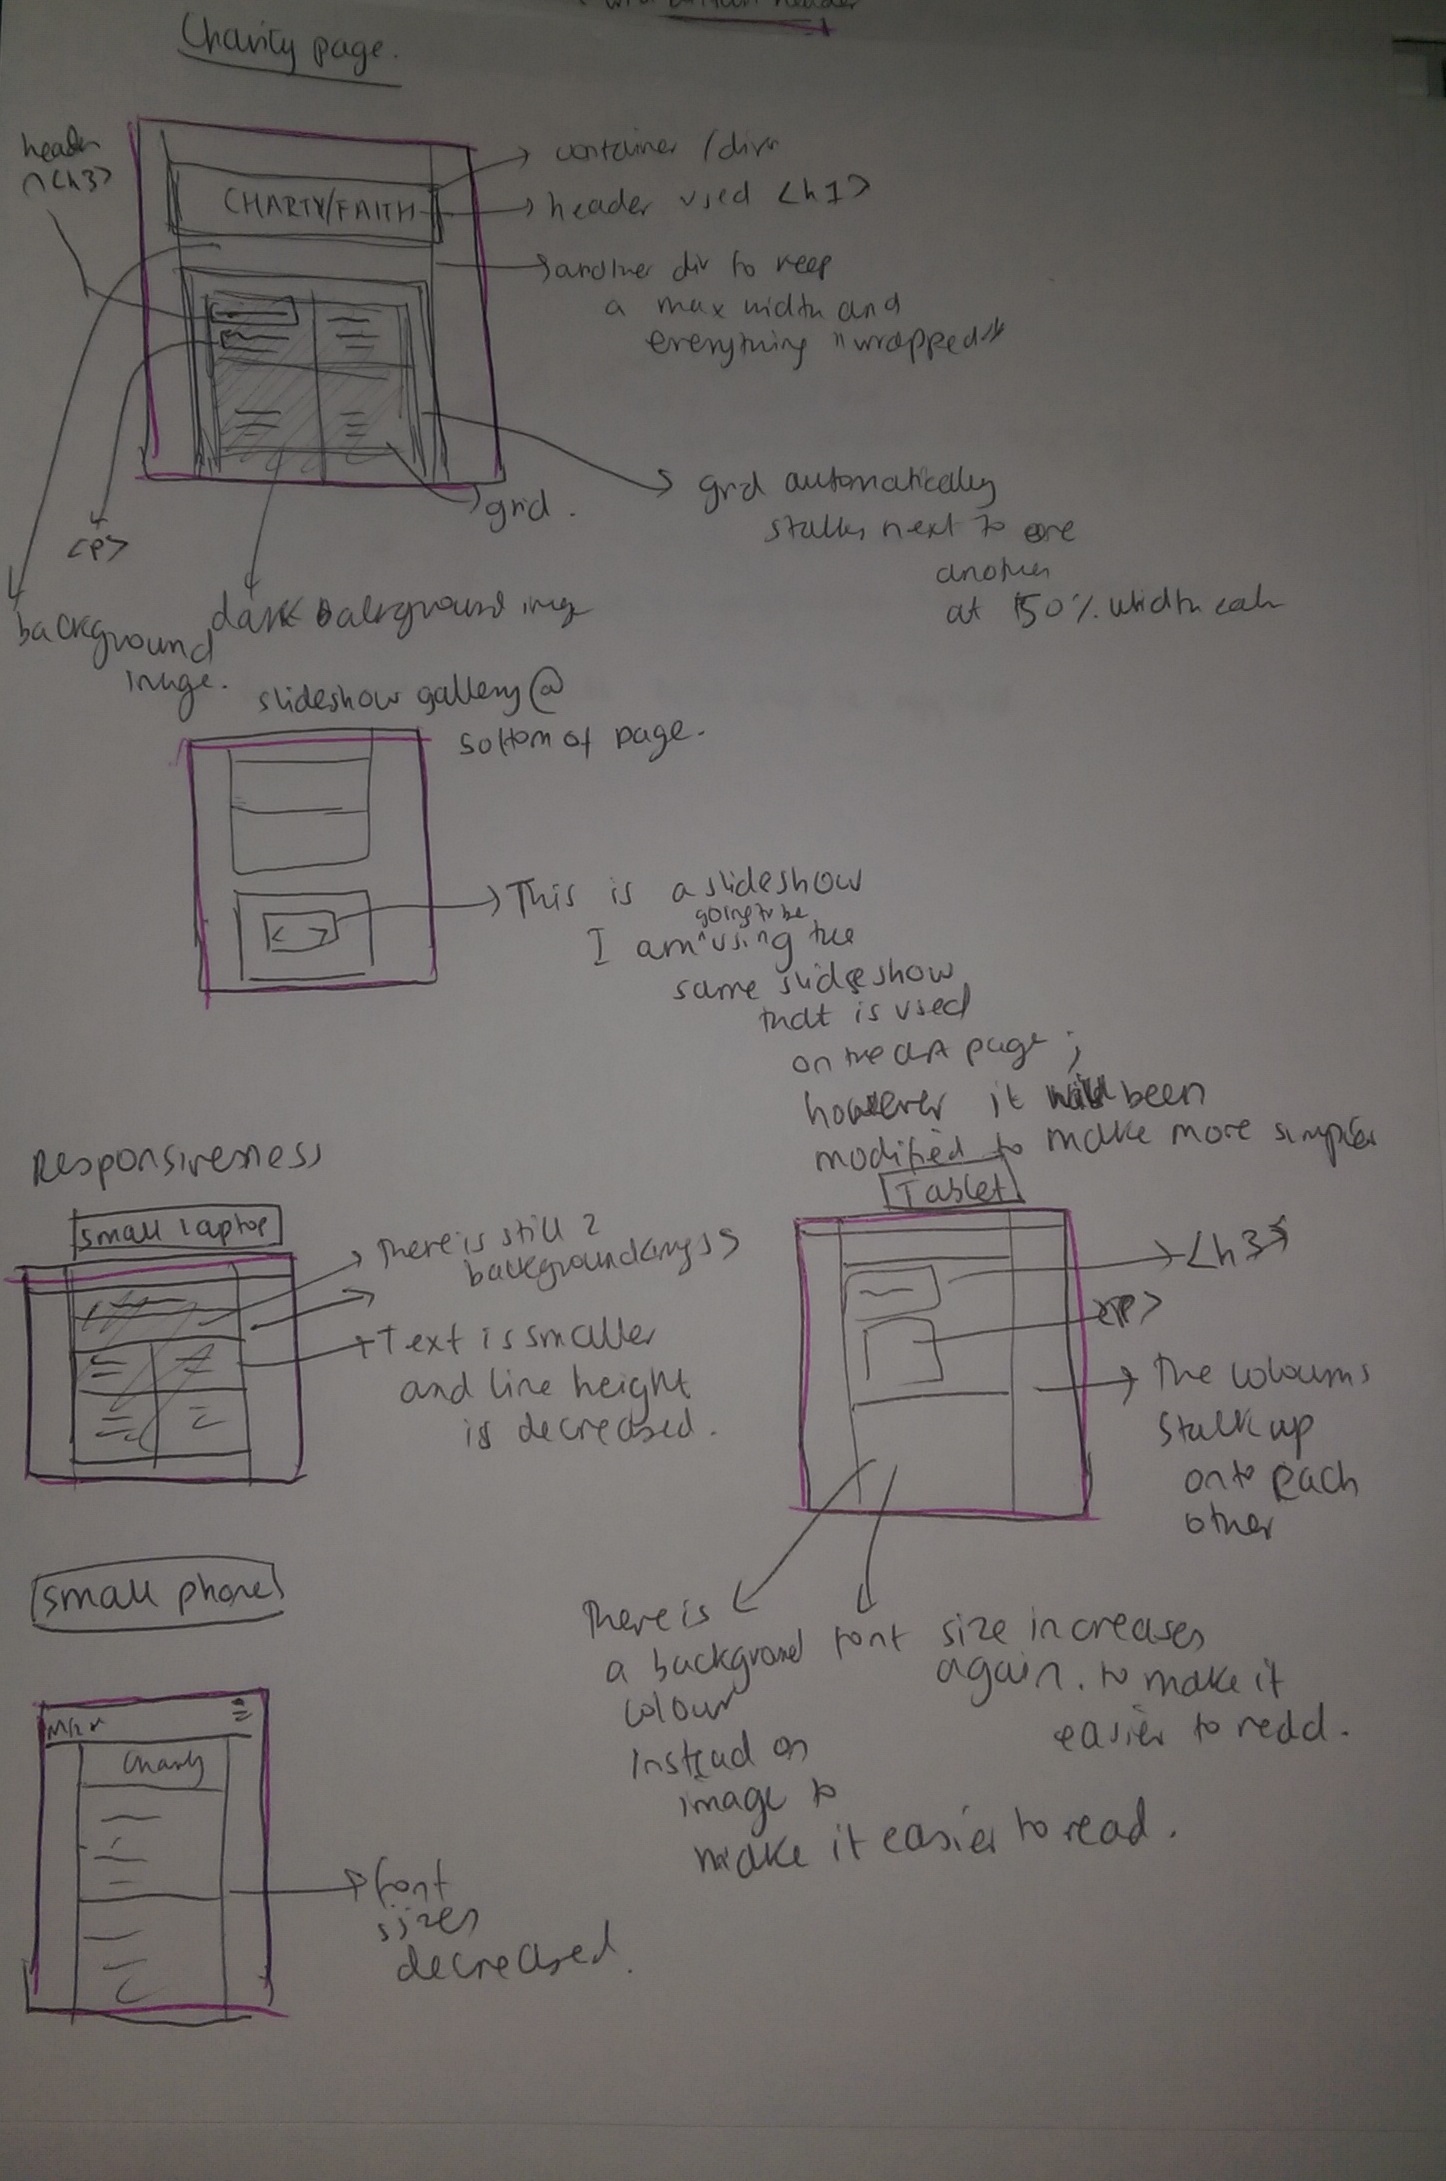 Charity page.
header
<h3>
CHARTY/FAITH
container / div
header used <h1>
another div to keep
a max width and
everything "wrapped"
grid.
grid automatically
stalks next to one
another
at 50% width each
<p>
background
image.
dark background image
slideshow gallery @
bottom of page.
< >
This is a slideshow
going to be
I am ^ using the
same slideshow
that is used
on the art page;
however it been
modified to make more simpler
Responsiveness
small laptop
There is still 2
background
Text is smaller
and line height
is decreased.
Tablet
<h3>
<p>
The coloums
stalk up
onto each
other
There is
a background
colour
instead on
image to
make it easier to read.
font size increases
again. to make it
easier to read.
small phone
Charity
font
sizes
decreased.